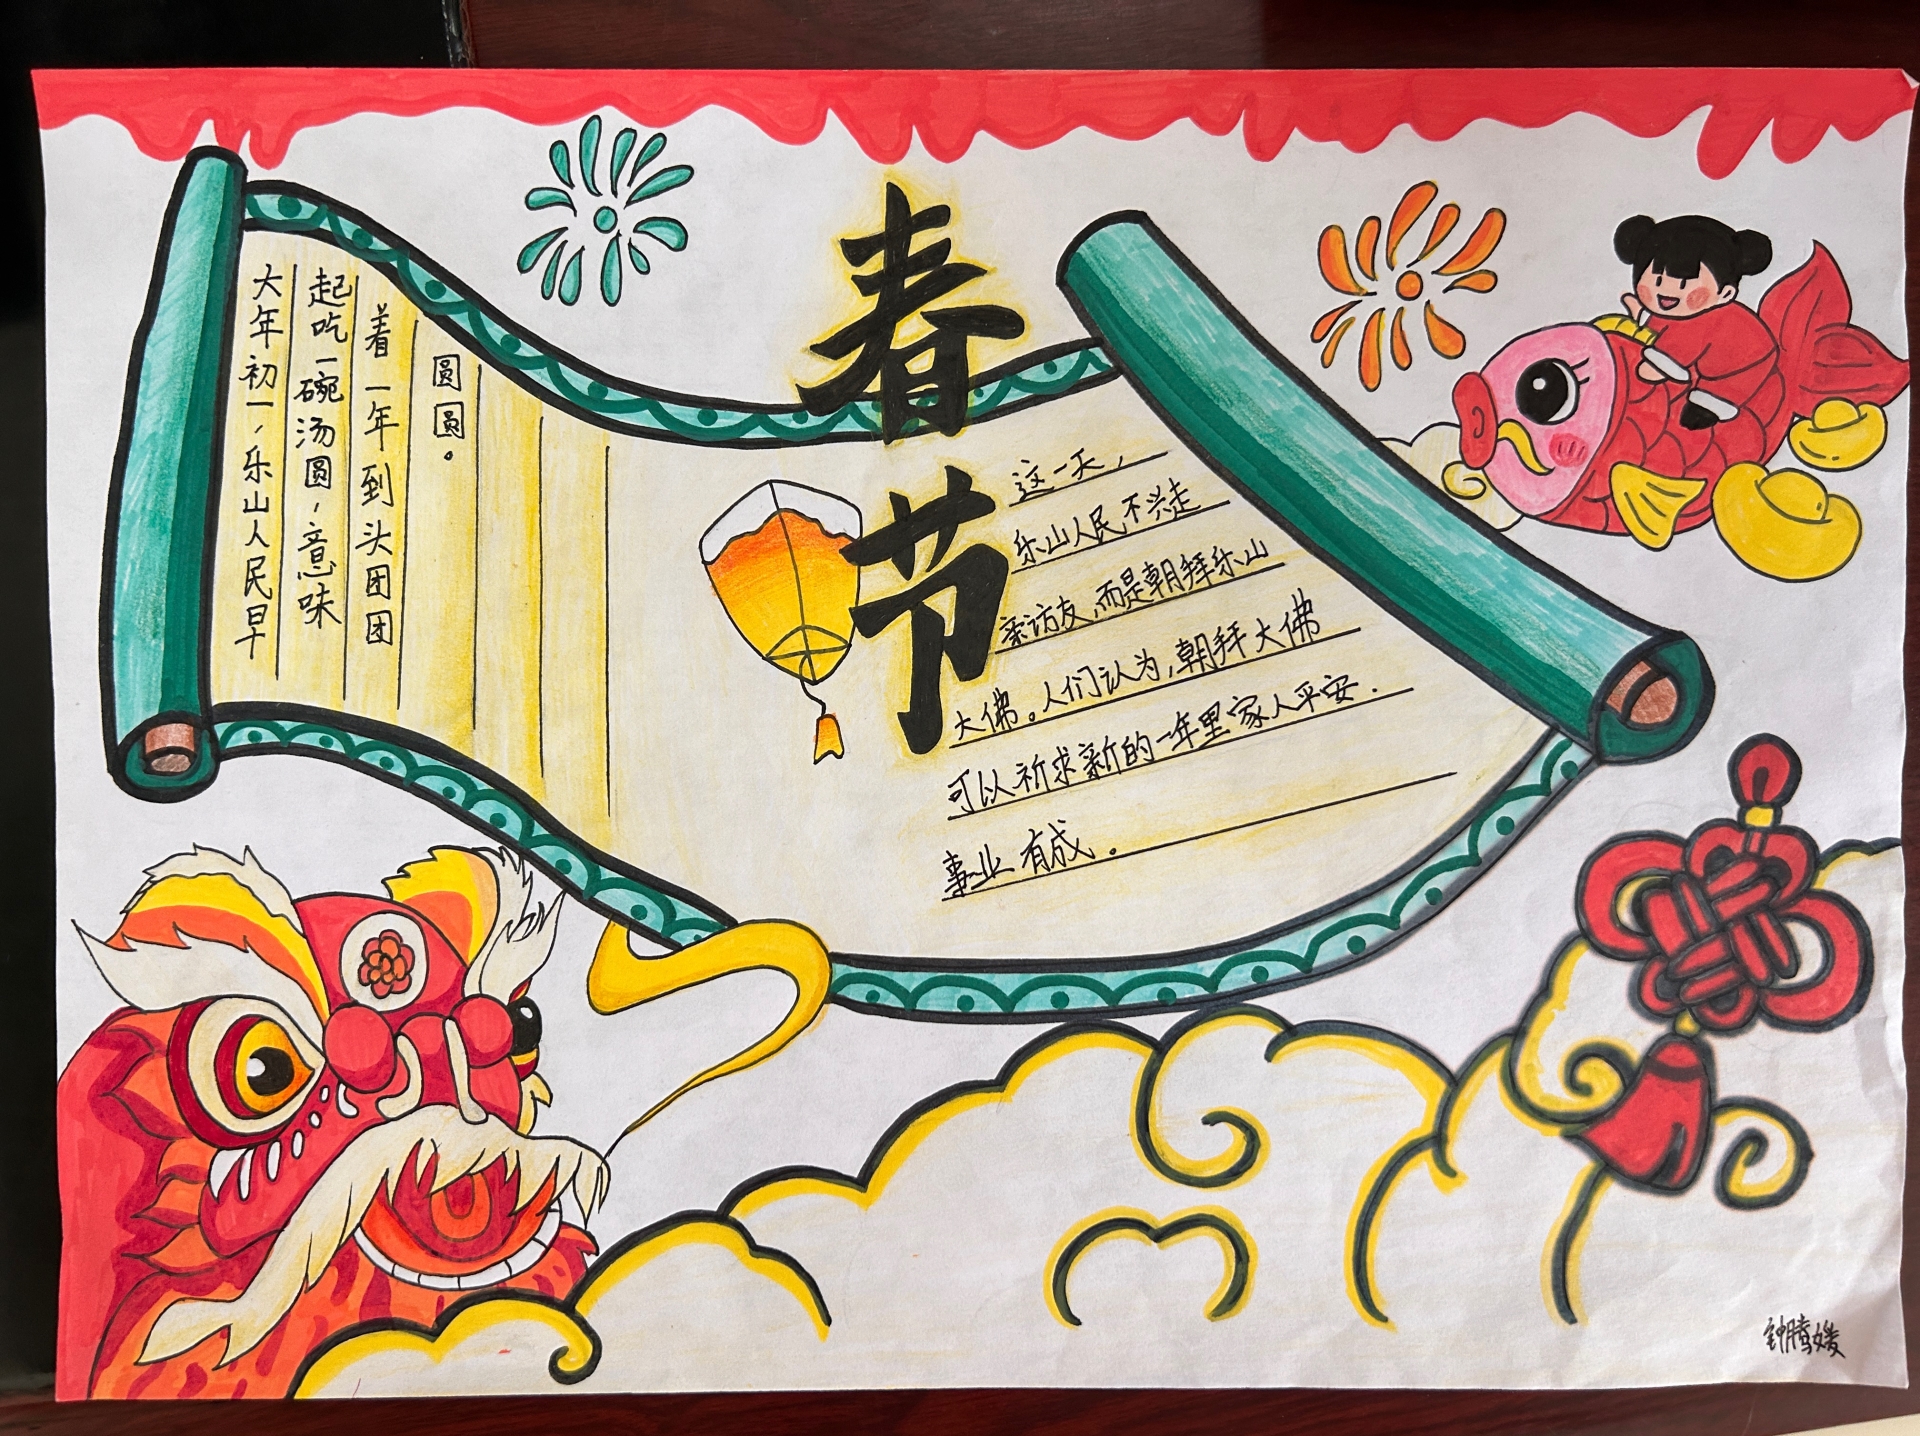 春节
大年初一，乐山人民早
起吃一碗汤圆，意味
着一年到头团团
圆圆。
这一天，
乐山人民，不兴走
亲访友，而是朝拜乐山
大佛。人们认为，朝拜大佛
可以祈求新的一年里家人平安．
事业有成。
钟腾媛